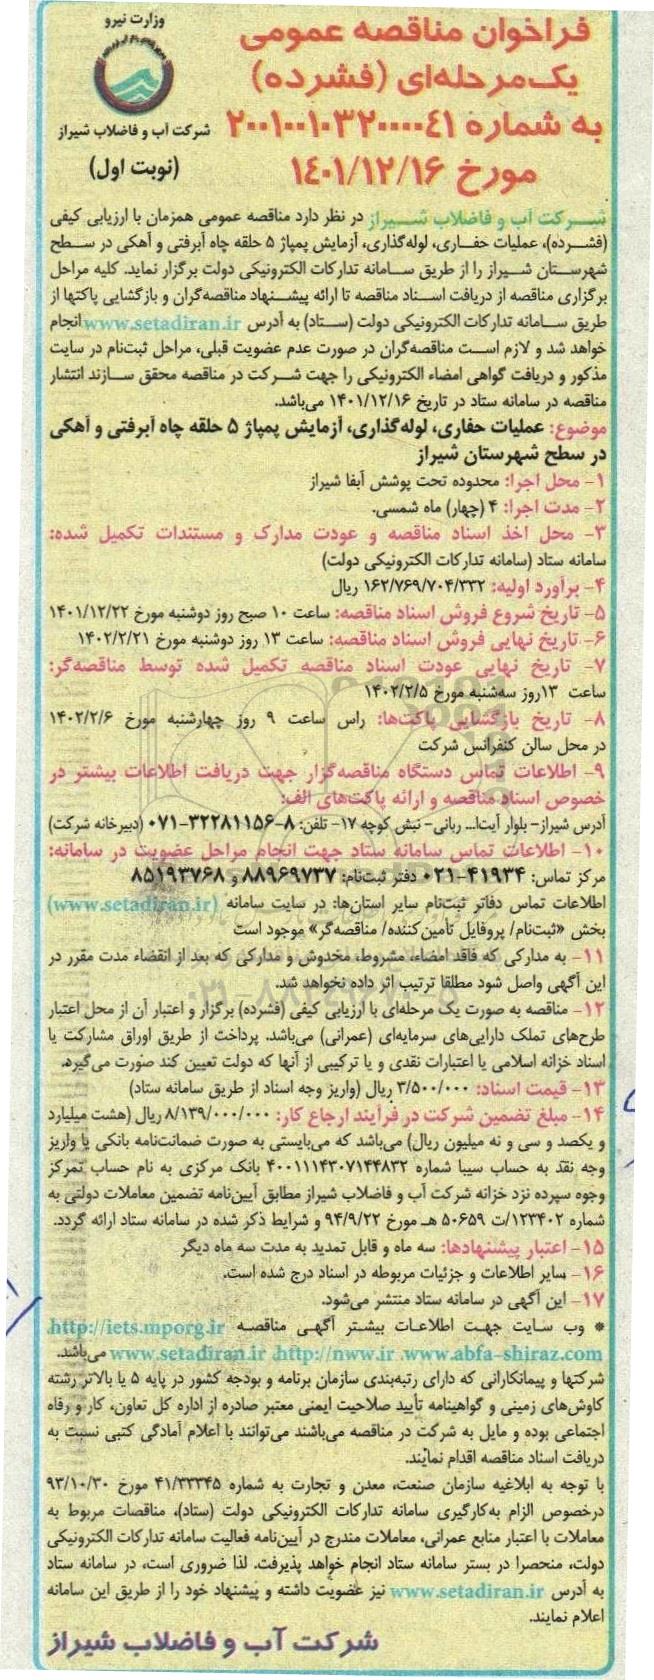 وزارت نیرو
شرکت آب و فاضلاب شیراز
(نوبت اول)
فراخوان مناقصه عمومی
یک‌مرحله‌ای (فشرده)
به شماره ۲۰۰۱۰۰۱۰۳۲۰۰۰۰۴۱
مورخ ۱۴۰۱/۱۲/۱۶
شرکت آب و فاضلاب شیراز در نظر دارد مناقصه عمومی همزمان با ارزیابی کیفی
(فشرده)، عملیات حفاری، لوله‌گذاری، آزمایش پمپاژ ۵ حلقه چاه آبرفتی و آهکی در سطح
شهرستان شیراز را از طریق سامانه تدارکات الکترونیکی دولت برگزار نماید. کلیه مراحل
برگزاری مناقصه از دریافت اسناد مناقصه تا ارائه پیشنهاد مناقصه‌گران و بازگشایی پاکتها از
طریق سامانه تدارکات الکترونیکی دولت (ستاد) به آدرس www.setadiran.ir انجام
خواهد شد و لازم است مناقصه‌گران در صورت عدم عضویت قبلی، مراحل ثبت‌نام در سایت
مذکور و دریافت گواهی امضاء الکترونیکی را جهت شرکت در مناقصه محقق سازند انتشار
مناقصه در سامانه ستاد در تاریخ ۱۴۰۱/۱۲/۱۶ می‌باشد.
موضوع: عملیات حفاری، لوله‌گذاری، آزمایش پمپاژ ۵ حلقه چاه آبرفتی و آهکی
در سطح شهرستان شیراز
۱- محل اجرا: محدوده تحت پوشش آبفا شیراز
۲- مدت اجرا: ۴ (چهار) ماه شمسی.
۳- محل اخذ اسناد مناقصه و عودت مدارک و مستندات تکمیل شده:
سامانه ستاد (سامانه تدارکات الکترونیکی دولت)
۴- برآورد اولیه: ۱۶۲/۷۶۹/۷۰۴/۳۳۲ ریال
۵- تاریخ شروع فروش اسناد مناقصه: ساعت ۱۰ صبح روز دوشنبه مورخ ۱۴۰۱/۱۲/۲۲
۶- تاریخ نهایی فروش اسناد مناقصه: ساعت ۱۳ روز دوشنبه مورخ ۱۴۰۲/۲/۲۱
۷- تاریخ نهایی عودت اسناد مناقصه تکمیل شده توسط مناقصه‌گر:
ساعت ۱۳روز سه‌شنبه مورخ ۱۴۰۲/۲/۵
۸- تاریخ بازگشایی پاکت‌ها: راس ساعت ۹ روز چهارشنبه مورخ ۱۴۰۲/۲/۶
در محل سالن کنفرانس شرکت
۹- اطلاعات تماس دستگاه مناقصه‌گزار جهت دریافت اطلاعات بیشتر در
خصوص اسناد مناقصه و ارائه پاکت‌های الف:
آدرس شیراز- بلوار آیت‌ا... ربانی- نبش کوچه ۱۷- تلفن: ۸-۳۲۲۸۱۱۵۶-۰۷۱ (دبیرخانه شرکت)
۱۰- اطلاعات تماس سامانه ستاد جهت انجام مراحل عضویت در سامانه:
مرکز تماس: ۴۱۹۳۴-۰۲۱ دفتر ثبت‌نام: ۸۸۹۶۹۷۳۷ و ۸۵۱۹۳۷۶۸
اطلاعات تماس دفاتر ثبت‌نام سایر استان‌ها: در سایت سامانه (www.setadiran.ir)
بخش «ثبت‌نام/ پروفایل تأمین‌کننده/ مناقصه‌گر» موجود است
۱۱- به مدارکی که فاقد امضاء، مشروط، مخدوش و مدارکی که بعد از انقضاء مدت مقرر در
این آگهی واصل شود مطلقا ترتیب اثر داده نخواهد شد.
۱۲- مناقصه به صورت یک مرحله‌ای با ارزیابی کیفی (فشرده) برگزار و اعتبار آن از محل اعتبار
طرح‌های تملک دارایی‌های سرمایه‌ای (عمرانی) می‌باشد. پرداخت از طریق اوراق مشارکت یا
اسناد خزانه اسلامی یا اعتبارات نقدی و یا ترکیبی از آنها که دولت تعیین کند صورت می‌گیرد.
۱۳- قیمت اسناد: ۳/۵۰۰/۰۰۰ ریال (واریز وجه اسناد از طریق سامانه ستاد)
۱۴- مبلغ تضمین شرکت در فرآیند ارجاع کار: ۸/۱۳۹/۰۰۰/۰۰۰ ریال (هشت میلیارد
و یکصد و سی و نه میلیون ریال) می‌باشد که می‌بایستی به صورت ضمانت‌نامه بانکی یا واریز
وجه نقد به حساب سیبا شماره ۴۰۰۱۱۱۴۳۰۷۱۴۴۸۳۲ بانک مرکزی به نام حساب تمرکز
وجوه سپرده نزد خزانه شرکت آب و فاضلاب شیراز مطابق آیین‌نامه تضمین معاملات دولتی به
شماره ۱۲۳۴۰۲/ت ۵۰۶۵۹ هـ مورخ ۹۴/۹/۲۲ و شرایط ذکر شده در سامانه ستاد ارائه گردد.
۱۵- اعتبار پیشنهادها: سه ماه و قابل تمدید به مدت سه ماه دیگر
۱۶- سایر اطلاعات و جزئیات مربوطه در اسناد درج شده است.
۱۷- این آگهی در سامانه ستاد منتشر می‌شود.
* وب سایت جهت اطلاعات بیشتر آگهی مناقصه http://iets.mporg.ir
www.abfa-shiraz.com، http://nww.ir، www.setadiran.ir می‌باشد.
شرکتها و پیمانکارانی که دارای رتبه‌بندی سازمان برنامه و بودجه کشور در پایه ۵ یا بالاتر رشته
کاوش‌های زمینی و گواهینامه تأیید صلاحیت ایمنی معتبر صادره از اداره کل تعاون، کار و رفاه
اجتماعی بوده و مایل به شرکت در مناقصه می‌باشند می‌توانند با اعلام آمادگی کتبی نسبت به
دریافت اسناد مناقصه اقدام نمایند.
با توجه به ابلاغیه سازمان صنعت، معدن و تجارت به شماره ۴۱/۳۳۳۴۵ مورخ ۹۳/۱۰/۳۰
درخصوص الزام به‌کارگیری سامانه تدارکات الکترونیکی دولت (ستاد)، مناقصات مربوط به
معاملات با اعتبار منابع عمرانی، معاملات مندرج در آیین‌نامه فعالیت سامانه تدارکات الکترونیکی
دولت، منحصرا در بستر سامانه ستاد انجام خواهد پذیرفت. لذا ضروری است، در سامانه ستاد
به آدرس www.setadiran.ir نیز عضویت داشته و پیشنهاد خود را از طریق این سامانه
اعلام نمایند.
شرکت آب و فاضلاب شیراز